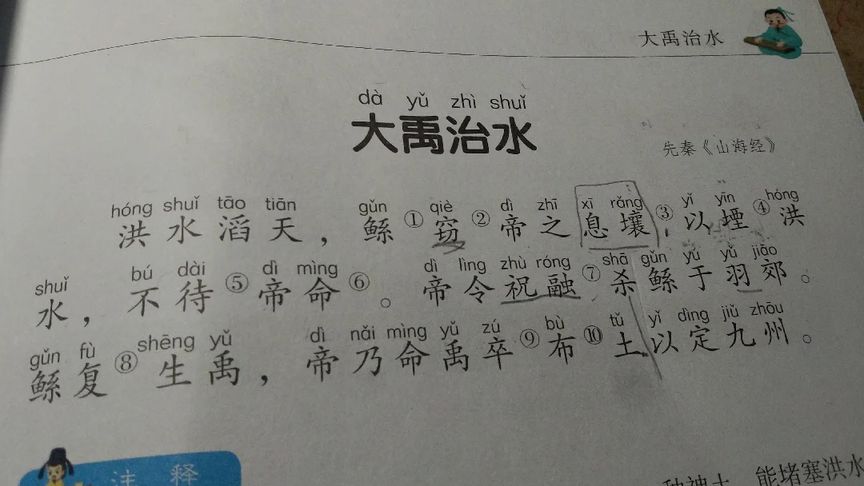 大禹治水
dà yǔ zhì shuǐ
大禹治水
先秦《山海经》
hóng shuǐ tāo tiān gǔn qiè dì zhī xī rǎng yǐ yīn hóng
洪水滔天，鲧①窃②帝之息壤③，以堙④洪
shuǐ bú dài dì mìng dì lìng zhù róng shā gǔn yú yǔ jiāo
水，不待⑤帝命⑥。帝令祝融⑦杀鲧于羽郊。
gǔn fù shēng yǔ dì nǎi mìng yǔ zú bù tǔ yǐ dìng jiǔ zhōu
鲧复⑧生禹，帝乃命禹卒⑨布⑩土以定九州。
注释
种神土，能堵塞洪水